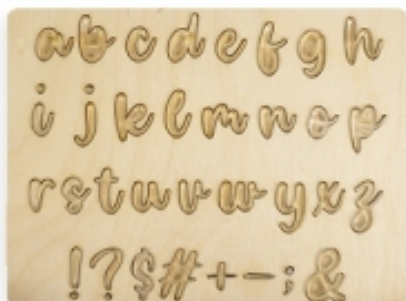 a b c d e f g h
i j k l m n o p
r s t u v w y x z
! ? $ # + - ; &